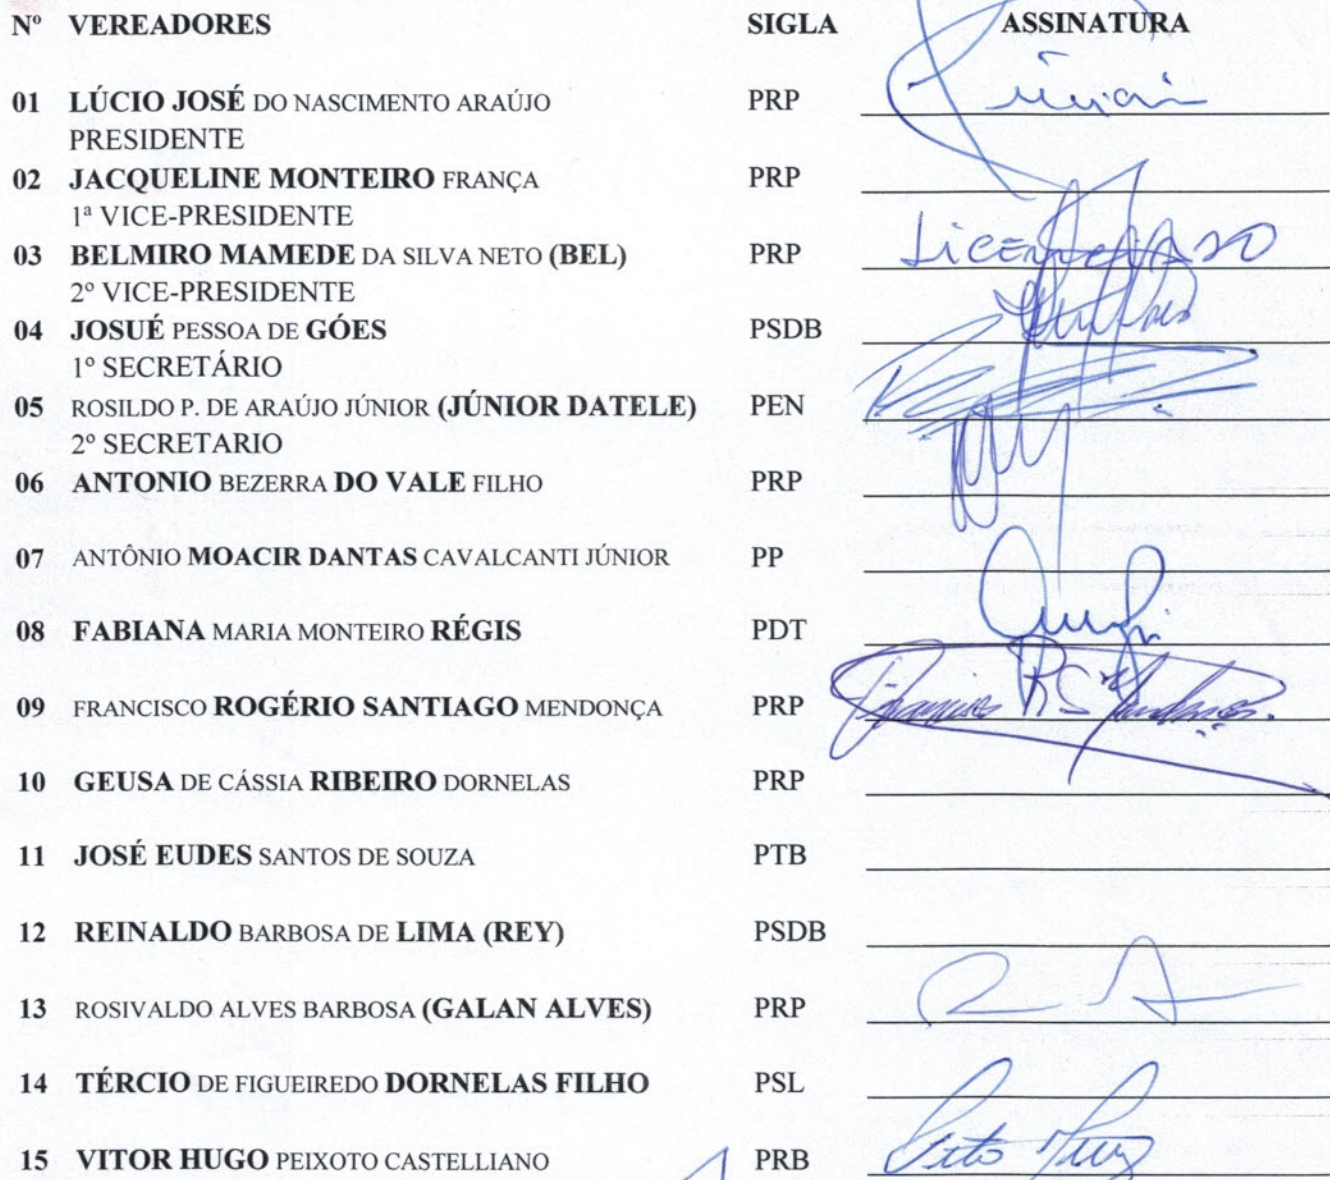 Nº VEREADORES SIGLA ASSINATURA
01 LÚCIO JOSÉ DO NASCIMENTO ARAÚJO PRP
PRESIDENTE
02 JACQUELINE MONTEIRO FRANÇA PRP
1ª VICE-PRESIDENTE
03 BELMIRO MAMEDE DA SILVA NETO (BEL) PRP LicenciADO
2º VICE-PRESIDENTE
04 JOSUÉ PESSOA DE GÓES PSDB
1º SECRETÁRIO
05 ROSILDO P. DE ARAÚJO JÚNIOR (JÚNIOR DATELE) PEN
2º SECRETARIO
06 ANTONIO BEZERRA DO VALE FILHO PRP
07 ANTÔNIO MOACIR DANTAS CAVALCANTI JÚNIOR PP
08 FABIANA MARIA MONTEIRO RÉGIS PDT
09 FRANCISCO ROGÉRIO SANTIAGO MENDONÇA PRP
10 GEUSA DE CÁSSIA RIBEIRO DORNELAS PRP
11 JOSÉ EUDES SANTOS DE SOUZA PTB
12 REINALDO BARBOSA DE LIMA (REY) PSDB
13 ROSIVALDO ALVES BARBOSA (GALAN ALVES) PRP
14 TÉRCIO DE FIGUEIREDO DORNELAS FILHO PSL
15 VITOR HUGO PEIXOTO CASTELLIANO PRB